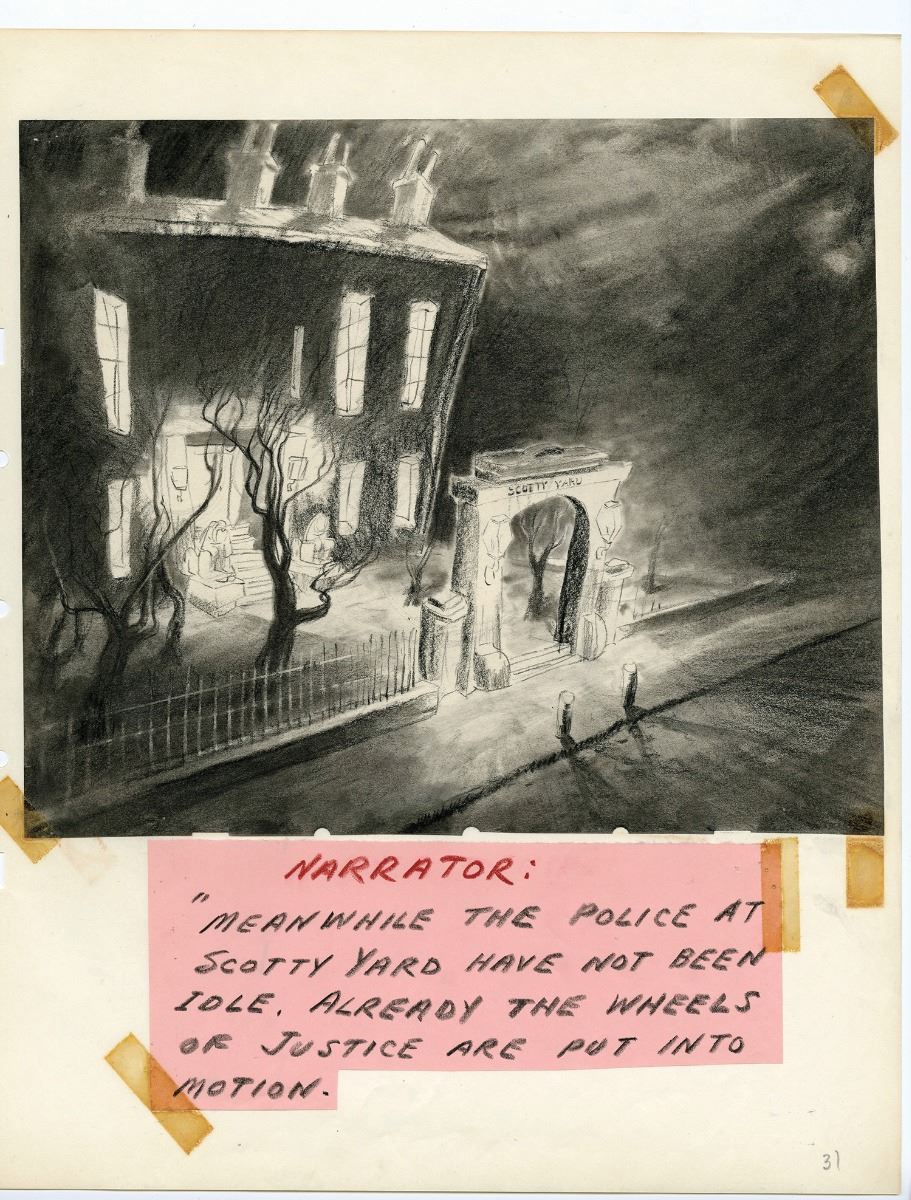 SCOTTY YARD
NARRATOR:
"MEANWHILE THE POLICE AT
SCOTTY YARD HAVE NOT BEEN
IDLE. ALREADY THE WHEELS
OF JUSTICE ARE PUT INTO
MOTION.
31